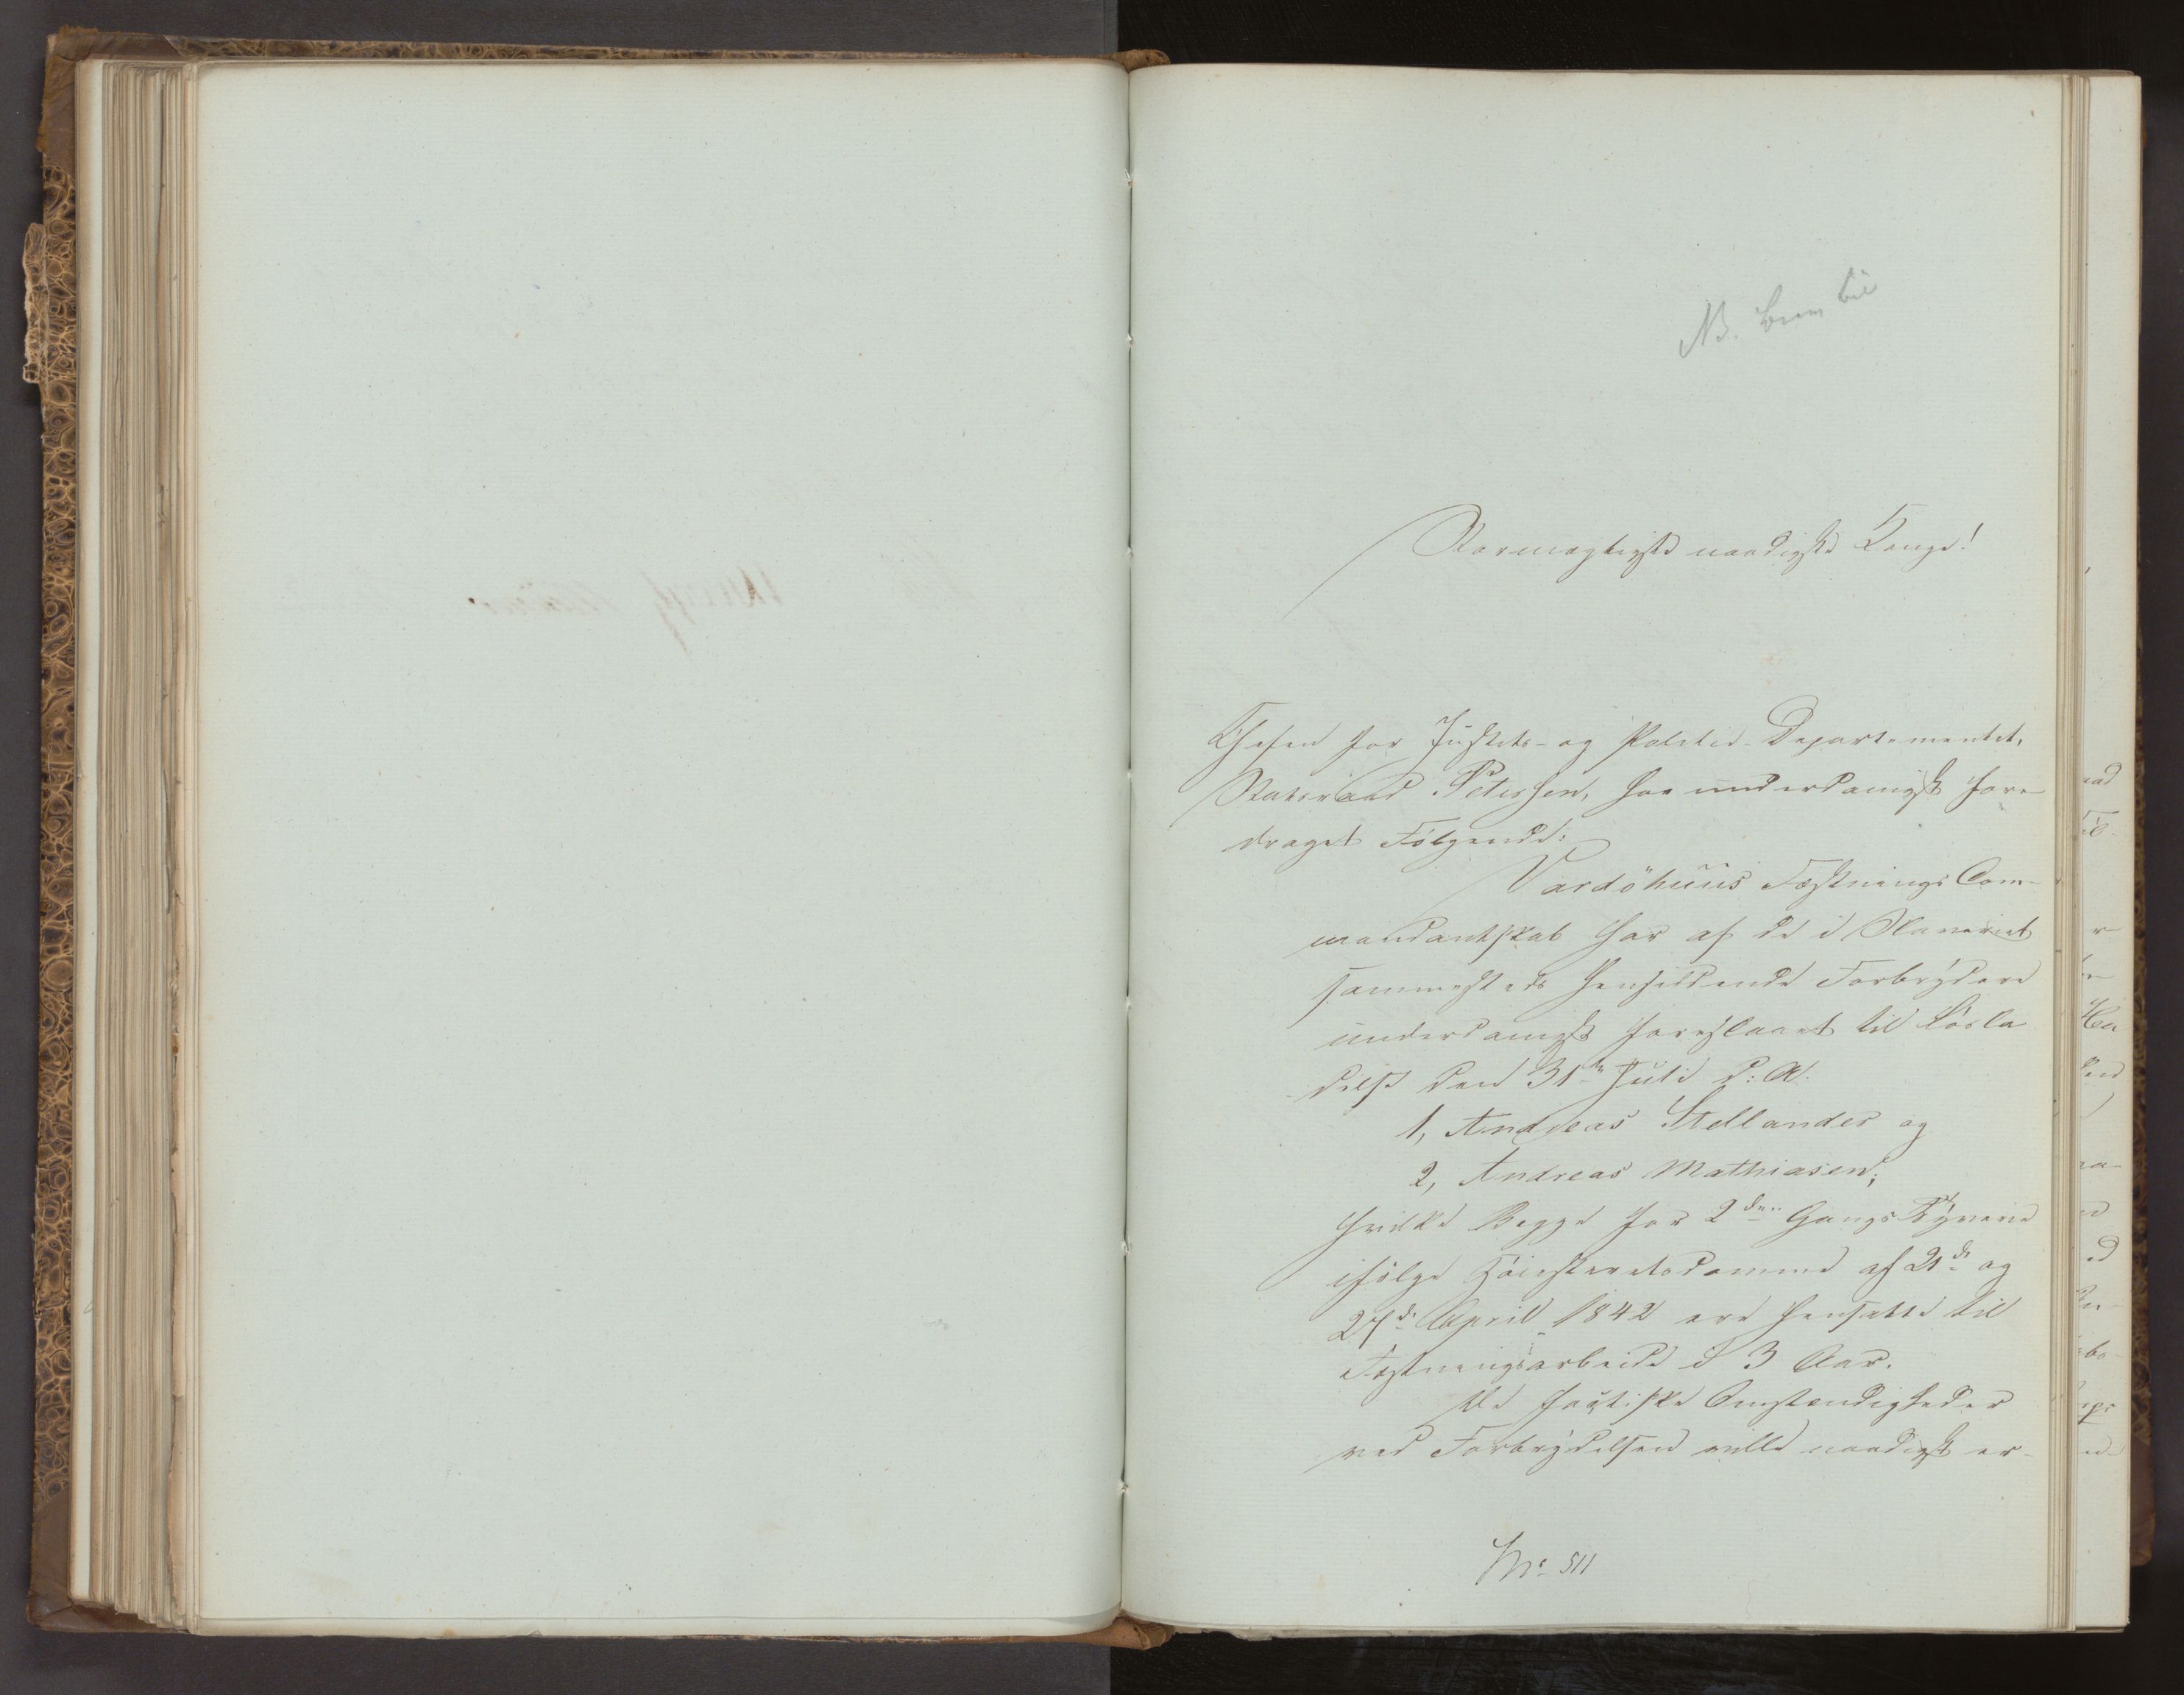 NB.
Stormægtigste naadigste Konge!
Chefen for Justits- og Politie-Departementet,
Statsraad Petersen, har underdanigst fore-
draget Følgende:
Vardöhuus Fæstnings Com-
mandantskab har af de i Slaveriet
sammesteds hensiddende Forbrydere
underdanigst foreslaaet til Løsla
delse den 31te Juli d: A.
1, Andreas Stellander og
2, Andreas Mathiasen;
hvilke Begge for 2den Gangs Tyverie
ifølge Høiesteretsdomme af 21de og
27de April 1842 ere hensatte til
Fæstningsarbeide i 3 Aar.
De factiske Omstændigheder
ved Forbrydelsen ville naadigst er-
No 511